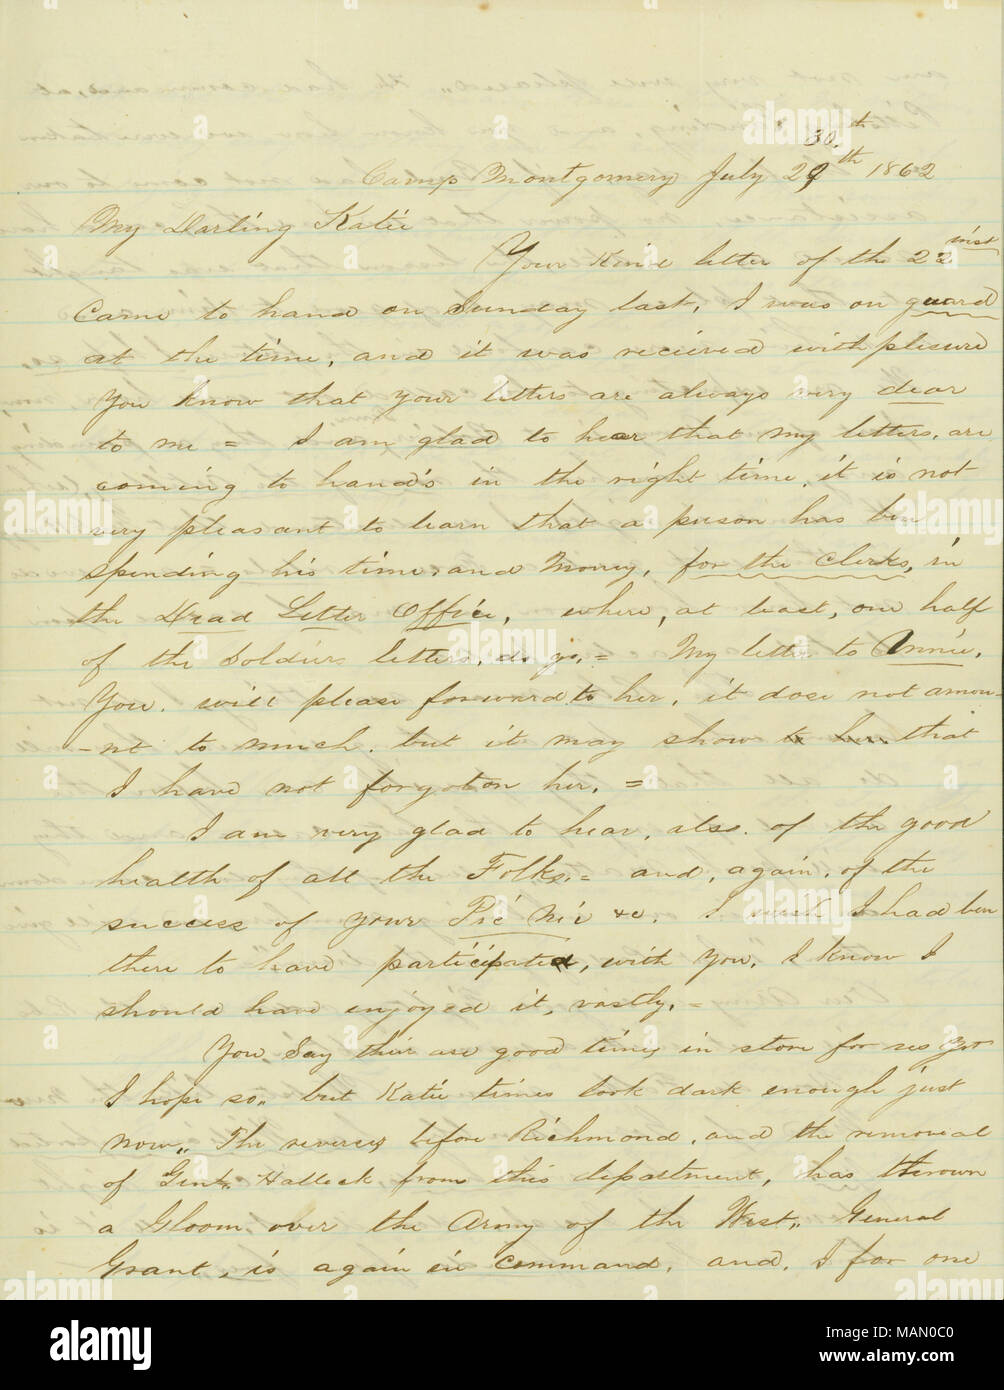 30.th
Camp Montgomery July 29th 1862
My Darling Katie
Your kind letter of the 22 inst
Came to hand on Sunday last, I was on guard
at the time, and it was recieved with plesure
You know that your letters are always very dear
to me = I am glad to hear that my letters, are
coming to hand's in the right time, it is not
very pleasant to learn that a person has ben
spending his time, and Money, for the Clerks, in
the Dead Letter Office, where, at least, one half
of the Soldiers letters, do go, = My letter to Annie,
You. will please forward to her, it dose not amou-
-nt to much. but it may show to her that
I have not forgoton her, =
I am very glad to hear, also. of the good
health of all the Folks. = and, again, of the
success of your Pic Nic &c. I wish I had ben
there to have participated, with You, I know I
should have enjoyed it, vastly. =
You Say their are good times in store for us yet
I hope so,, but Katie times look dark enough just
now,, The reverses before Richmond, and the removal
of Genl. Halleck from this department, has thrown
a Gloom over the Army of the West,, General
Grant, is again in command, and, I for one
alamy stock photo
alamy
Image ID: MAN0C0
www.alamy.com